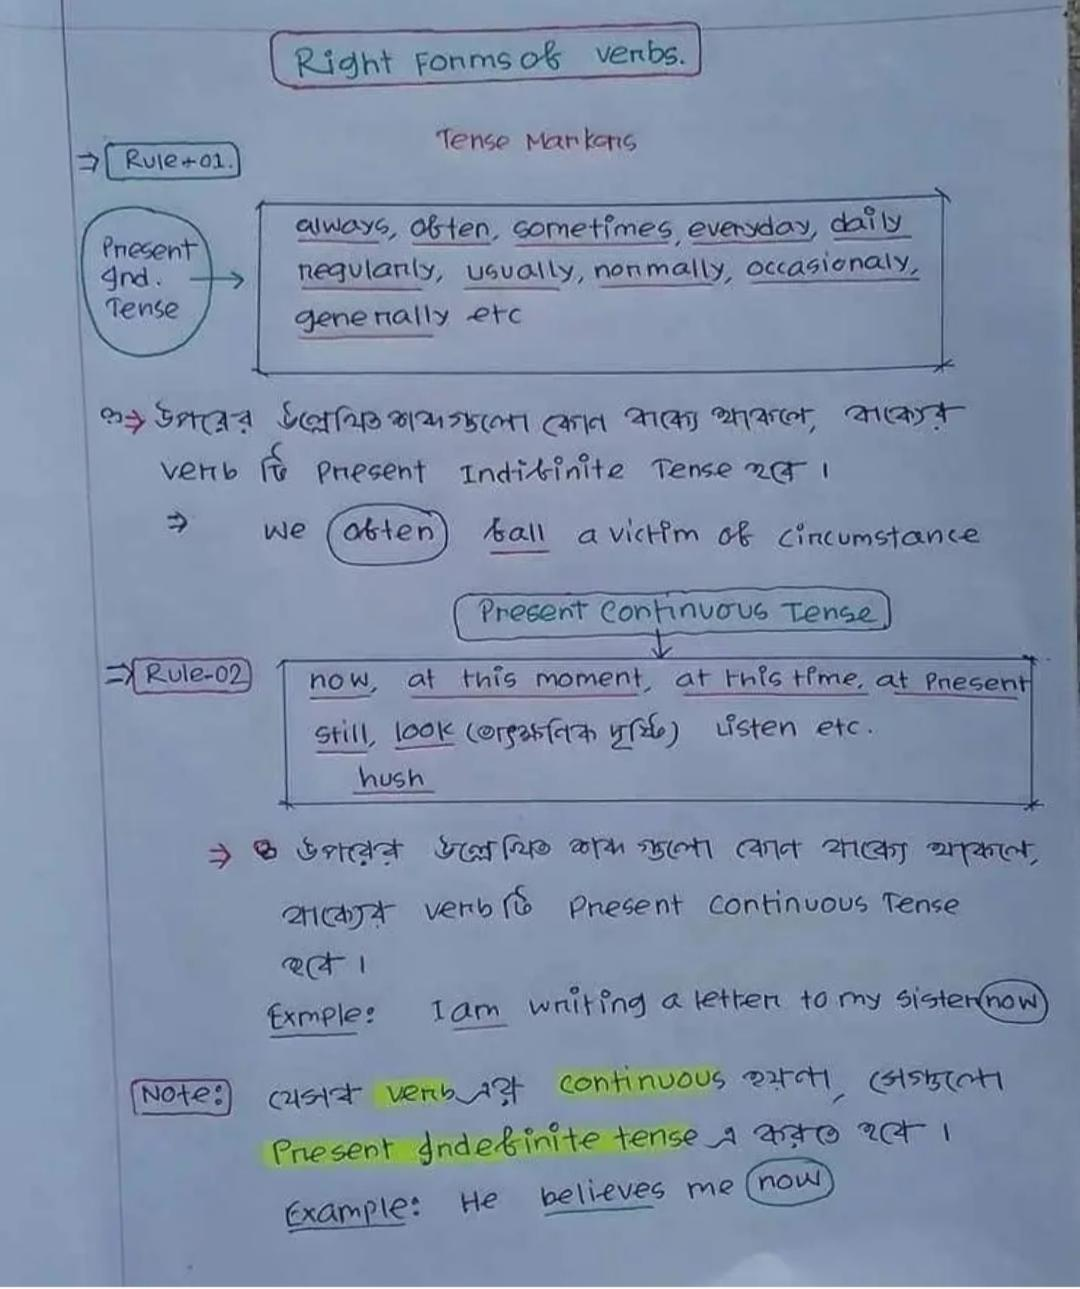 Right Forms of verbs.
Tense Markers
⇒ Rule-01.
Present
Ind.
Tense
always, often, sometimes, everyday, daily
regularly, usually, normally, occasionaly,
generally etc
⇒ উপরের উল্লেখিত শব্দগুলো কোন বাক্যে থাকলে, বাক্যের
verb টি Present Indifinite Tense হবে।
⇒ We often fall a victim of circumstance
Present Continuous Tense
⇒ Rule-02
now, at this moment, at this time, at Present
still, look ( ) Listen etc.
hush
⇒ উপরের উল্লেখিত শব্দ গুলো কোন বাক্যে থাকলে,
বাক্যের verb টি Present continuous Tense
হবে।
Exmple: I am writing a letter to my sister now
Note: যেসব verb এর continuous হয়না, সেগুলো
Present Indefinite tense এ করতে হবে।
Example: He believes me now